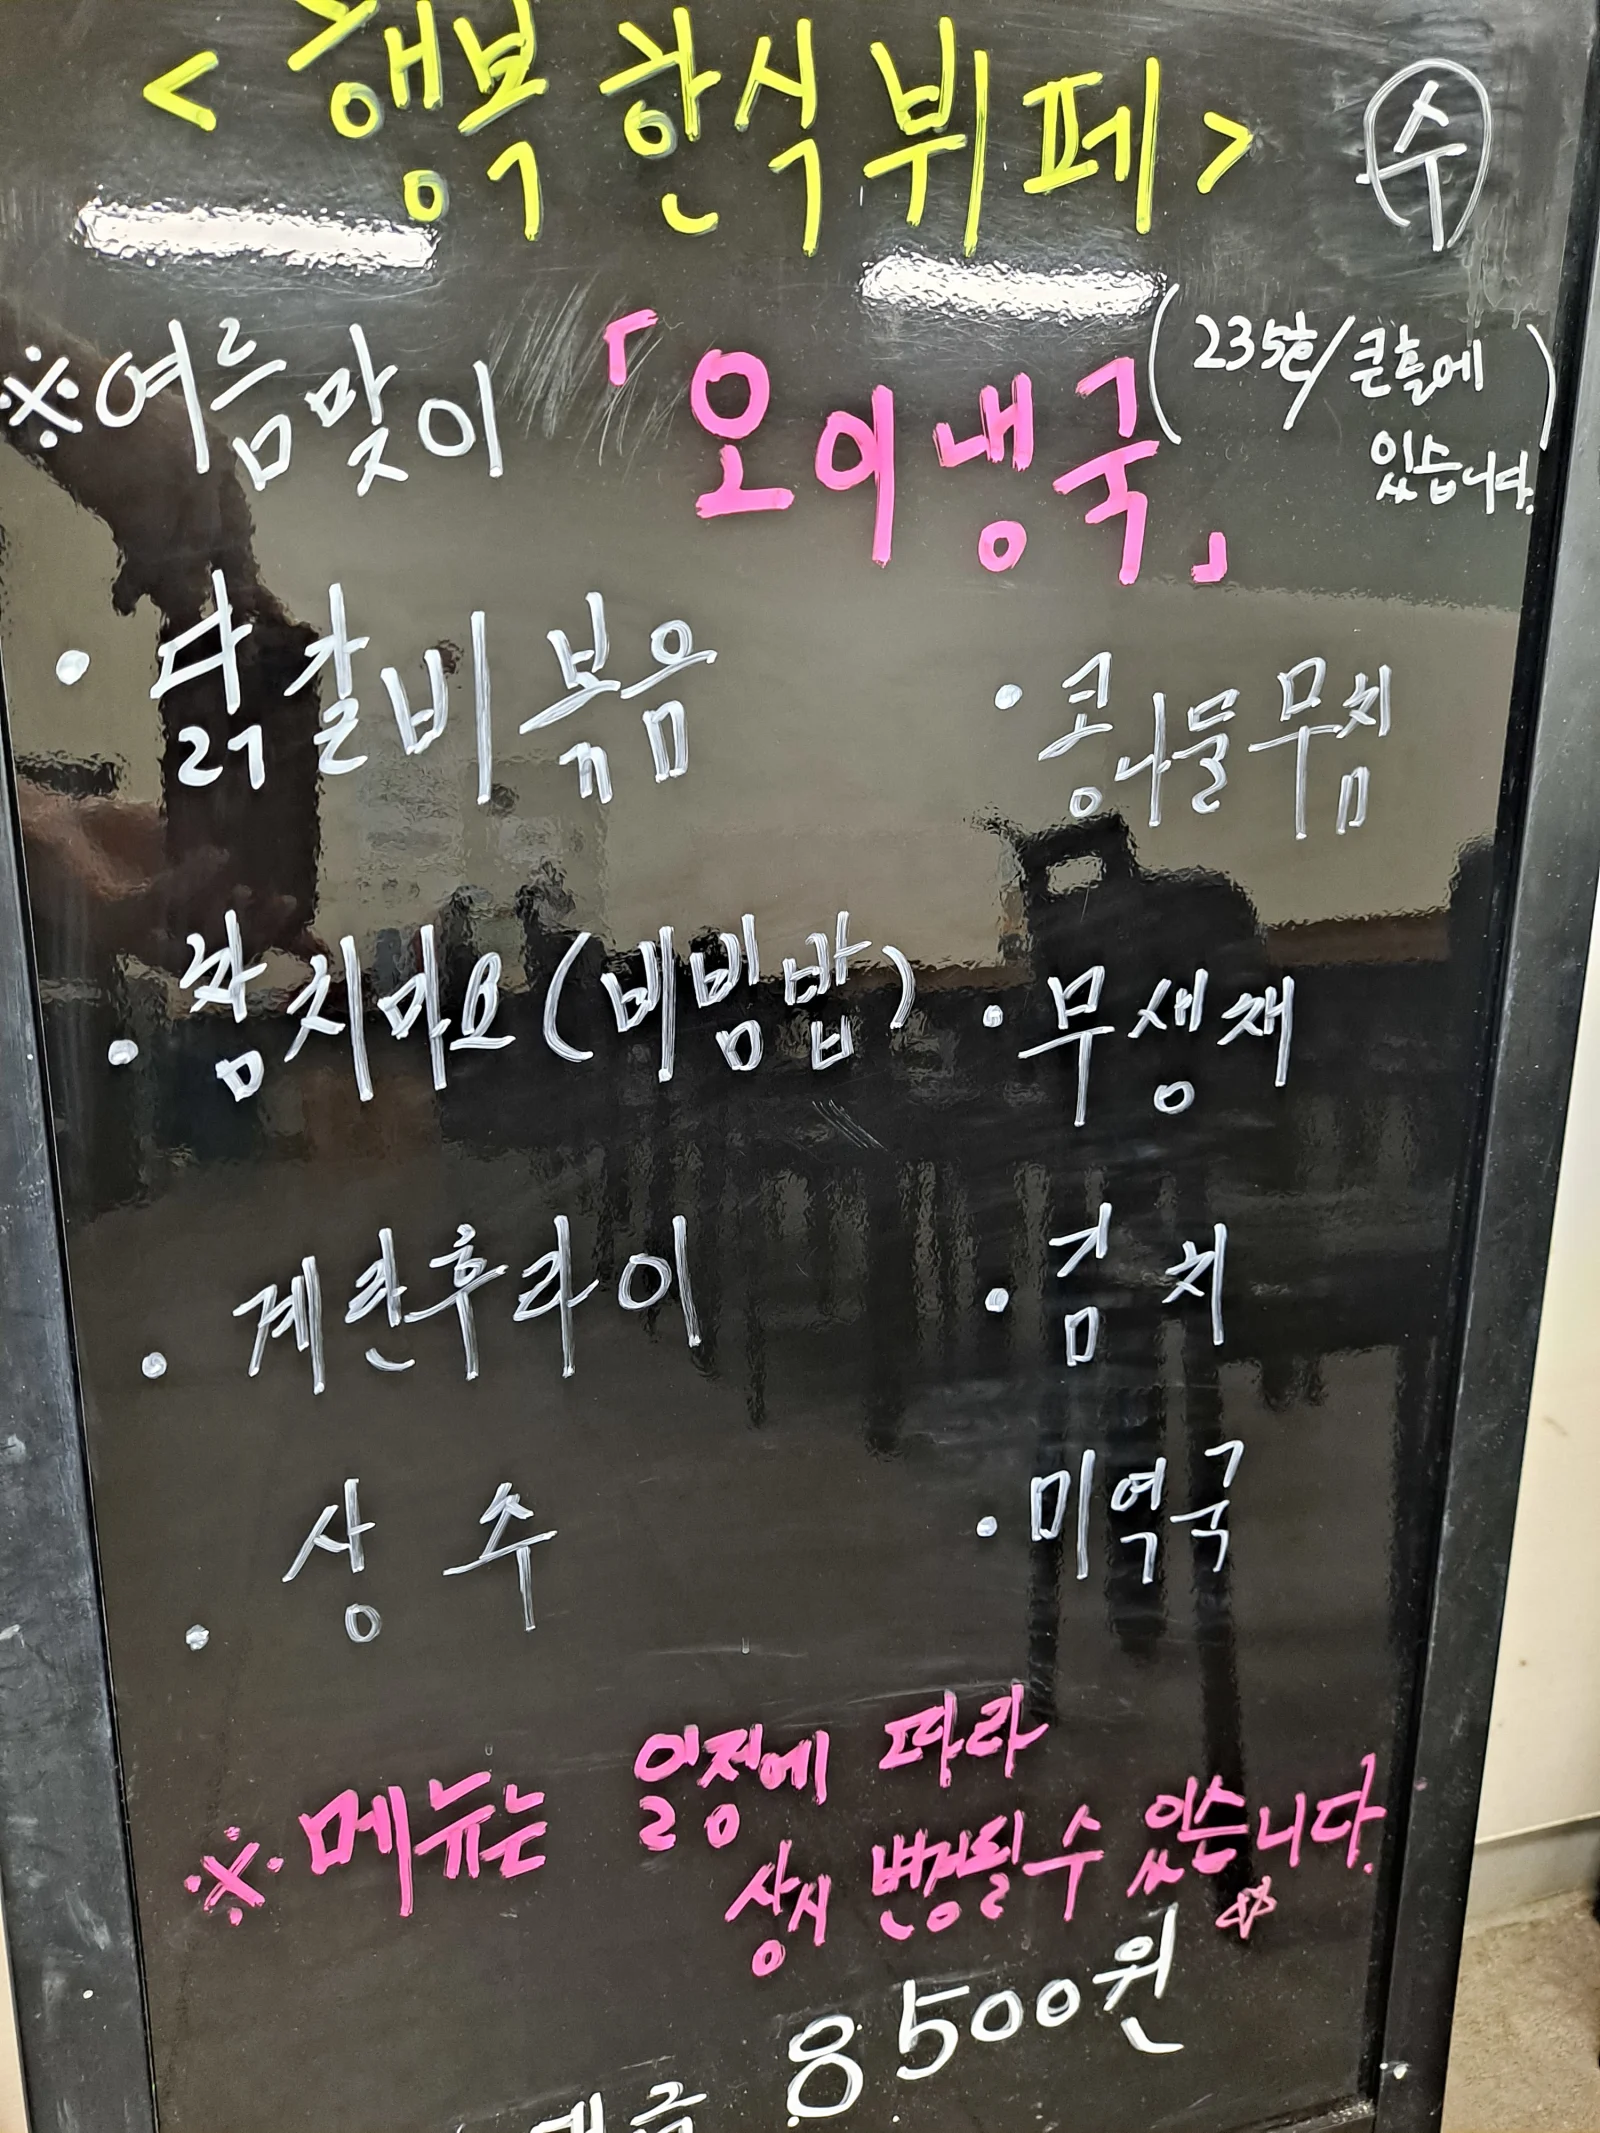 <행복 한식 뷔페> ㊌수
※여름맞이 「오이냉국」 (235호/큰홀에 있습니다.)
• 닭갈비볶음 • 콩나물무침
• 참치마요(비빔밥) • 무생채
• 계란후라이 • 김치
• 상추 • 미역국
※메뉴는 일정에 따라
상시 변경될 수 있습니다.☆
8500원